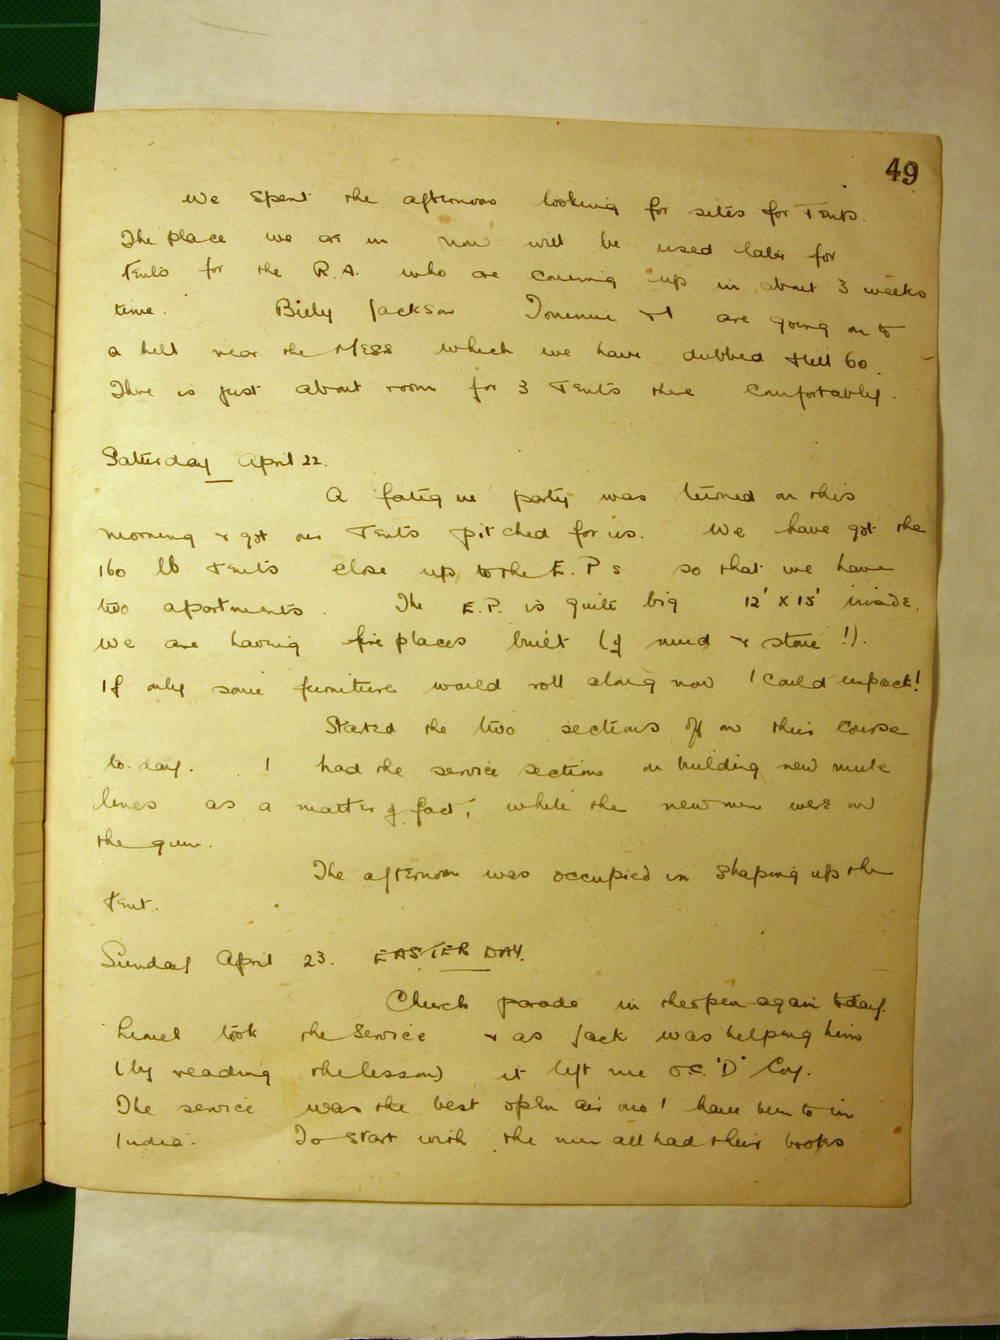 49
We spent the afternoon looking for sites for Tents.
The place we are in now will be used later for
tents for the R.A. who are coming up in about 3 weeks
time. Billy Jackson & I are going on to
a hill near the Mess which we have dubbed Hill 60.
There is just about room for 3 Tents there comfortably.
Saturday April 22.
A fatigue party was turned on this
morning & got our Tents pitched for us. We have got the
160 lb tents close up to the E.P.s so that we have
two apartments. The E.P. is quite big 12' x 15' inside.
We are having fire places built (of mud & stone!).
If only some furniture would roll along now I could unpack!
Started the two sections off on their course
to-day. I had the service section on building new mule
lines as a matter of fact, while the new men were on
the gun.
The afternoon was occupied in shaping up the
tent.
Sunday April 23. EASTER DAY.
Church parade in the open again today.
Lionel took the service & as Jack was helping him
(by reading the lesson) it left me O.C. 'D' Coy.
The service was the best open air one I have been to in
India. To start with the men all had their books